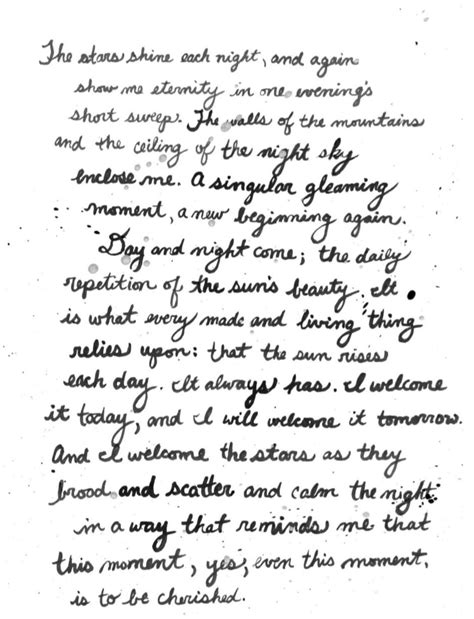 The stars shine each night, and again
show me eternity in one evening's
short sweep. The walls of the mountains
and the ceiling of the night sky
enclose me. A singular gleaming
moment, a new beginning again.
Day and night come; the daily
repetition of the sun's beauty. It
is what every made and living thing
relies upon: that the sun rises
each day. It always has. I welcome
it today, and I will welcome it tomorrow.
And I welcome the stars as they
brood and scatter and calm the night
in a way that reminds me that
this moment, yes, even this moment,
is to be cherished.